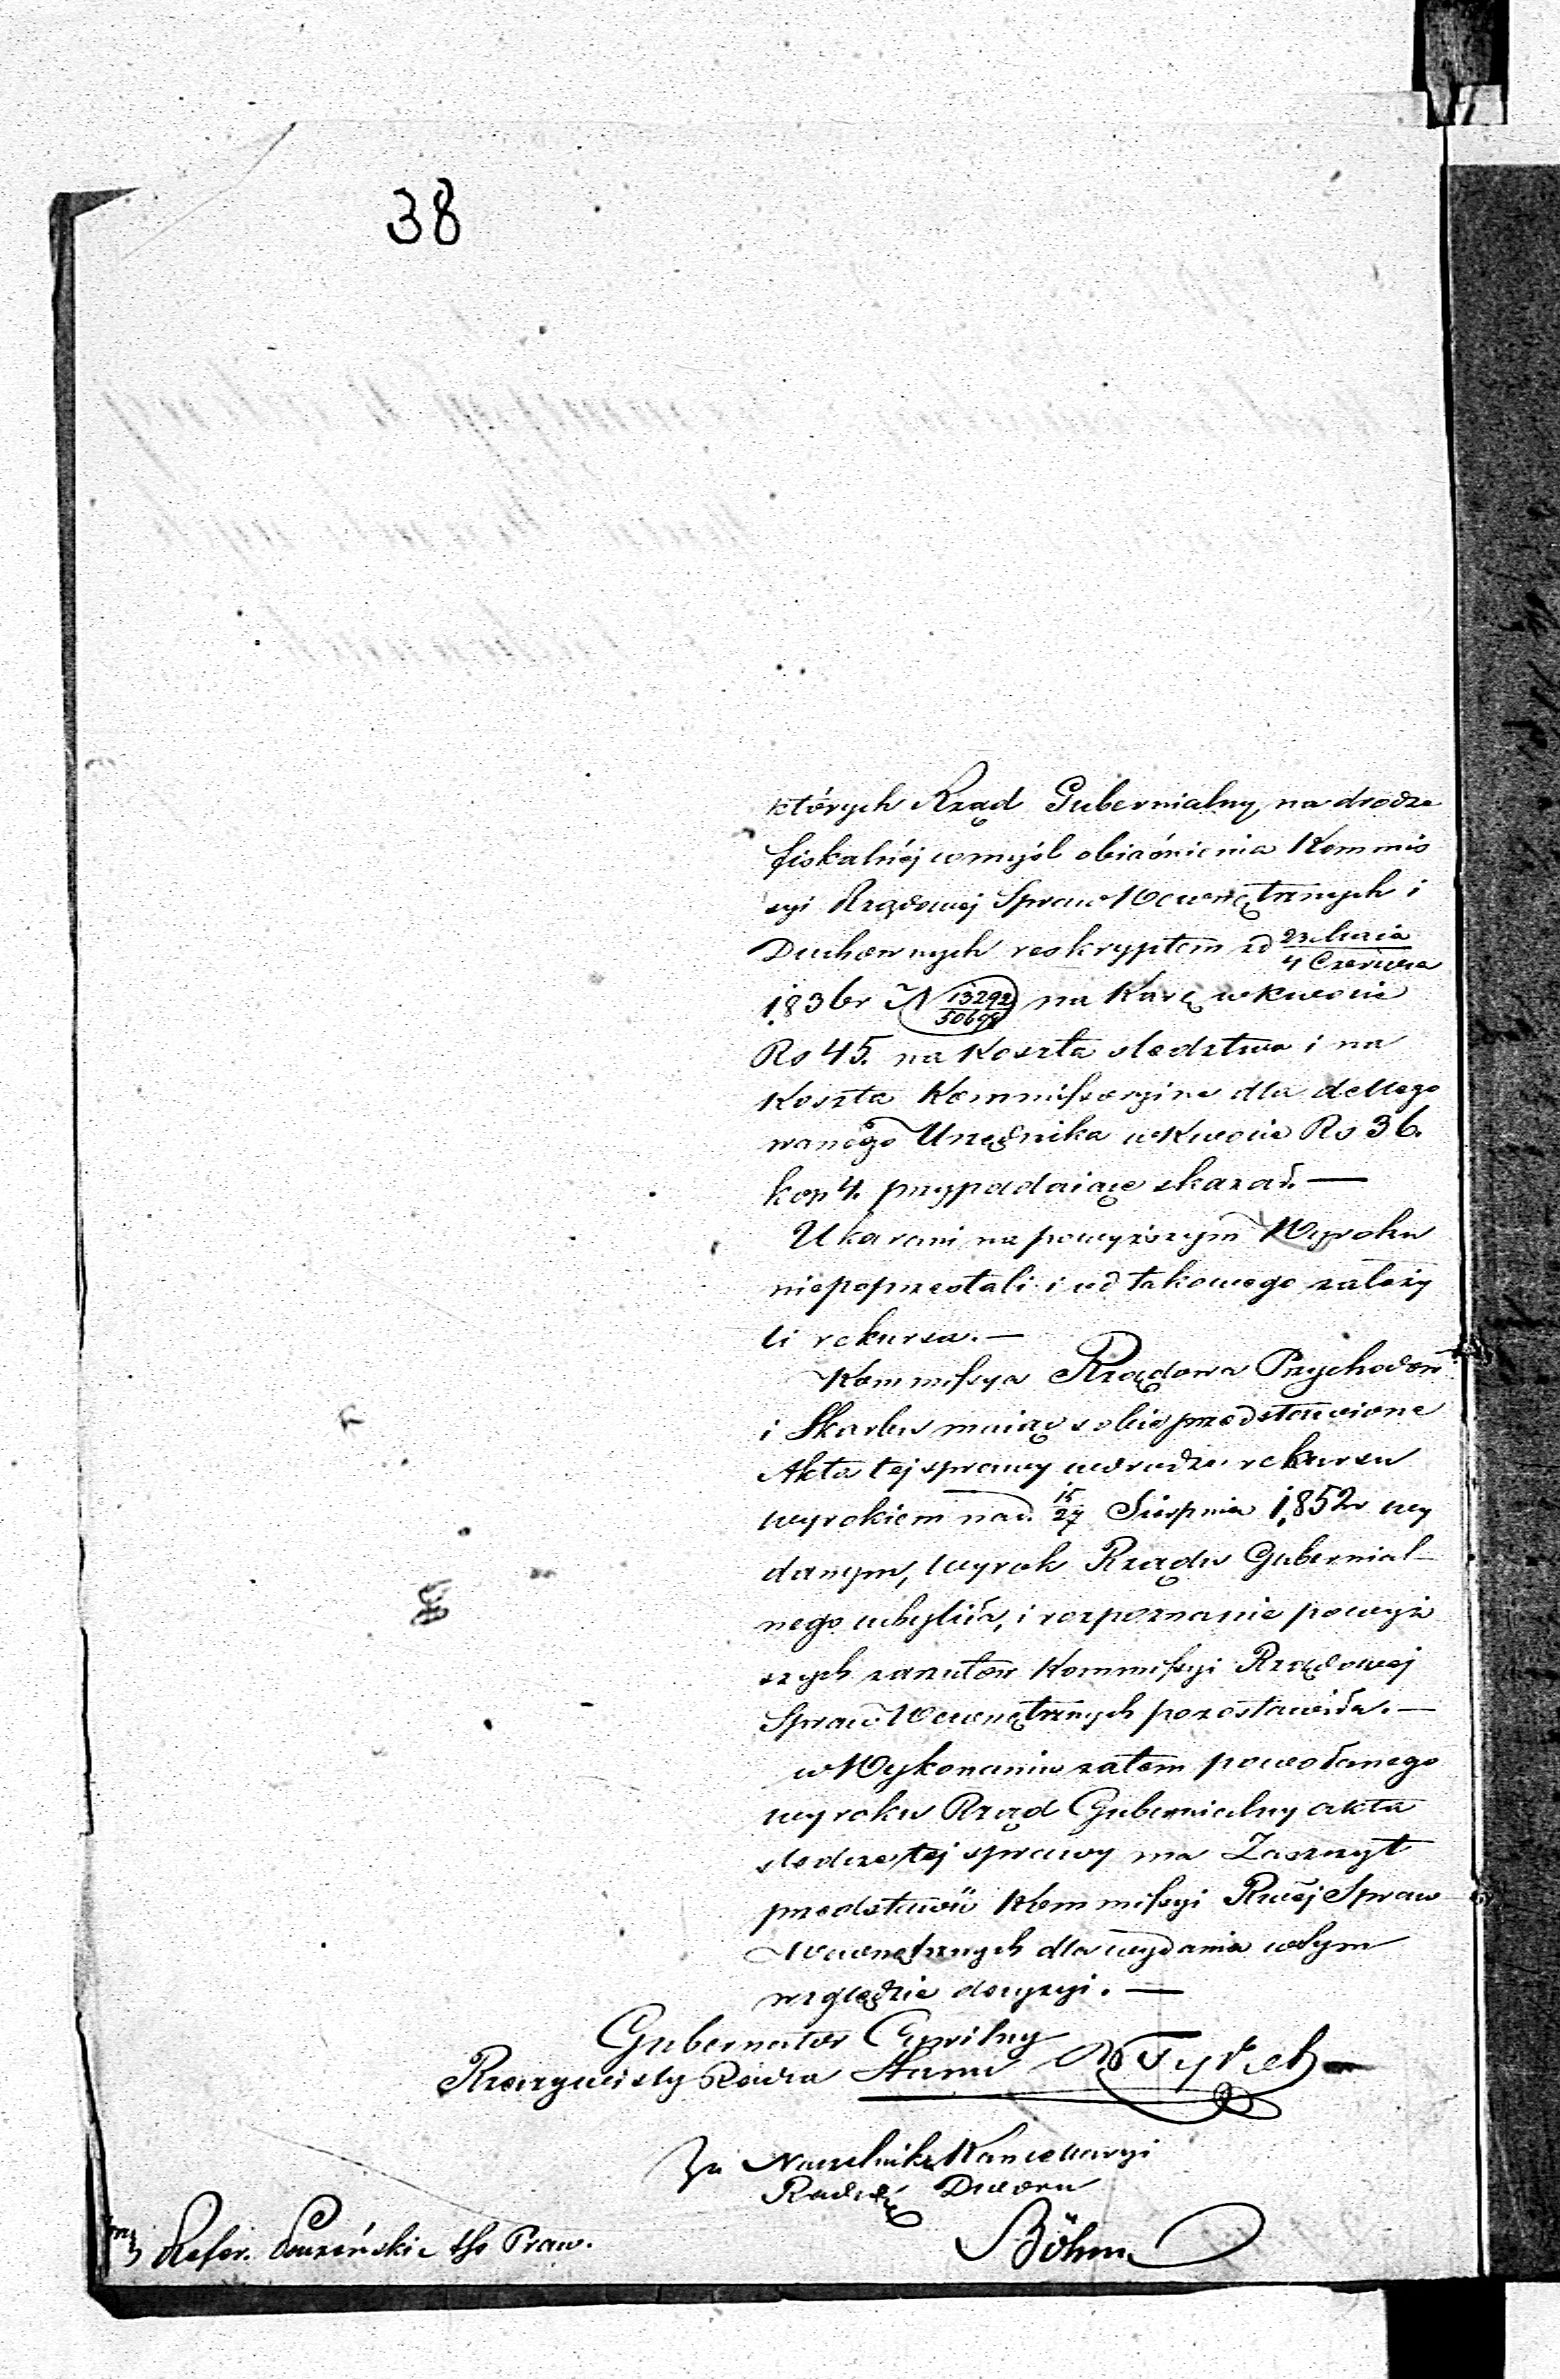 38
których Rząd Gubernialny na drodze
fiskalnéj w myśl obiaśnienia Kommis
syi Rządowej Spraw Wewnętrznych i
Duchownych reskryptem zd 23 Maia / 4 Czerwca
1836r N 13292/50698 na Karę w kwocie
Rs 45. na Koszta sledztwa i na
Koszta Kommissoryine dla delego
wanégo Urzędnika w Kwocie Rs 36.
kop 4. przypadaiące skazał. —
Ukarani na powyższym Wyroku
niepoprzestali i od takowego założy
li rekursa. —
Kommissya Rządowa Przychodów
i Skarbu maiąc sobie przedstawione
Akta tej sprawy w drodze rekursu
wyrokiem na d. 15/27 Sierpnia 1852r wy
danym, wyrok Rządu Gubernial-
nego uchyliła, i rozpoznanie powyż
szych zarzutów Kommissyi Rządowej
Spraw Wewnętrznych pozostawiła. —
w Wykonaniu zatem powołanego
wyroku Rząd Gubernialny akta
sledcze tej sprawy ma Zaszczyt
przedstawić Kommissyi Rwéj Spraw
Wewnętrznych dla wydania w tym
względzie decyzyi. —
Gubernator Cywilny
Rzeczywisty Radca Stanu
Za Naczelnika Kancellaryi
Radca Dworu
Böhm
Refer.